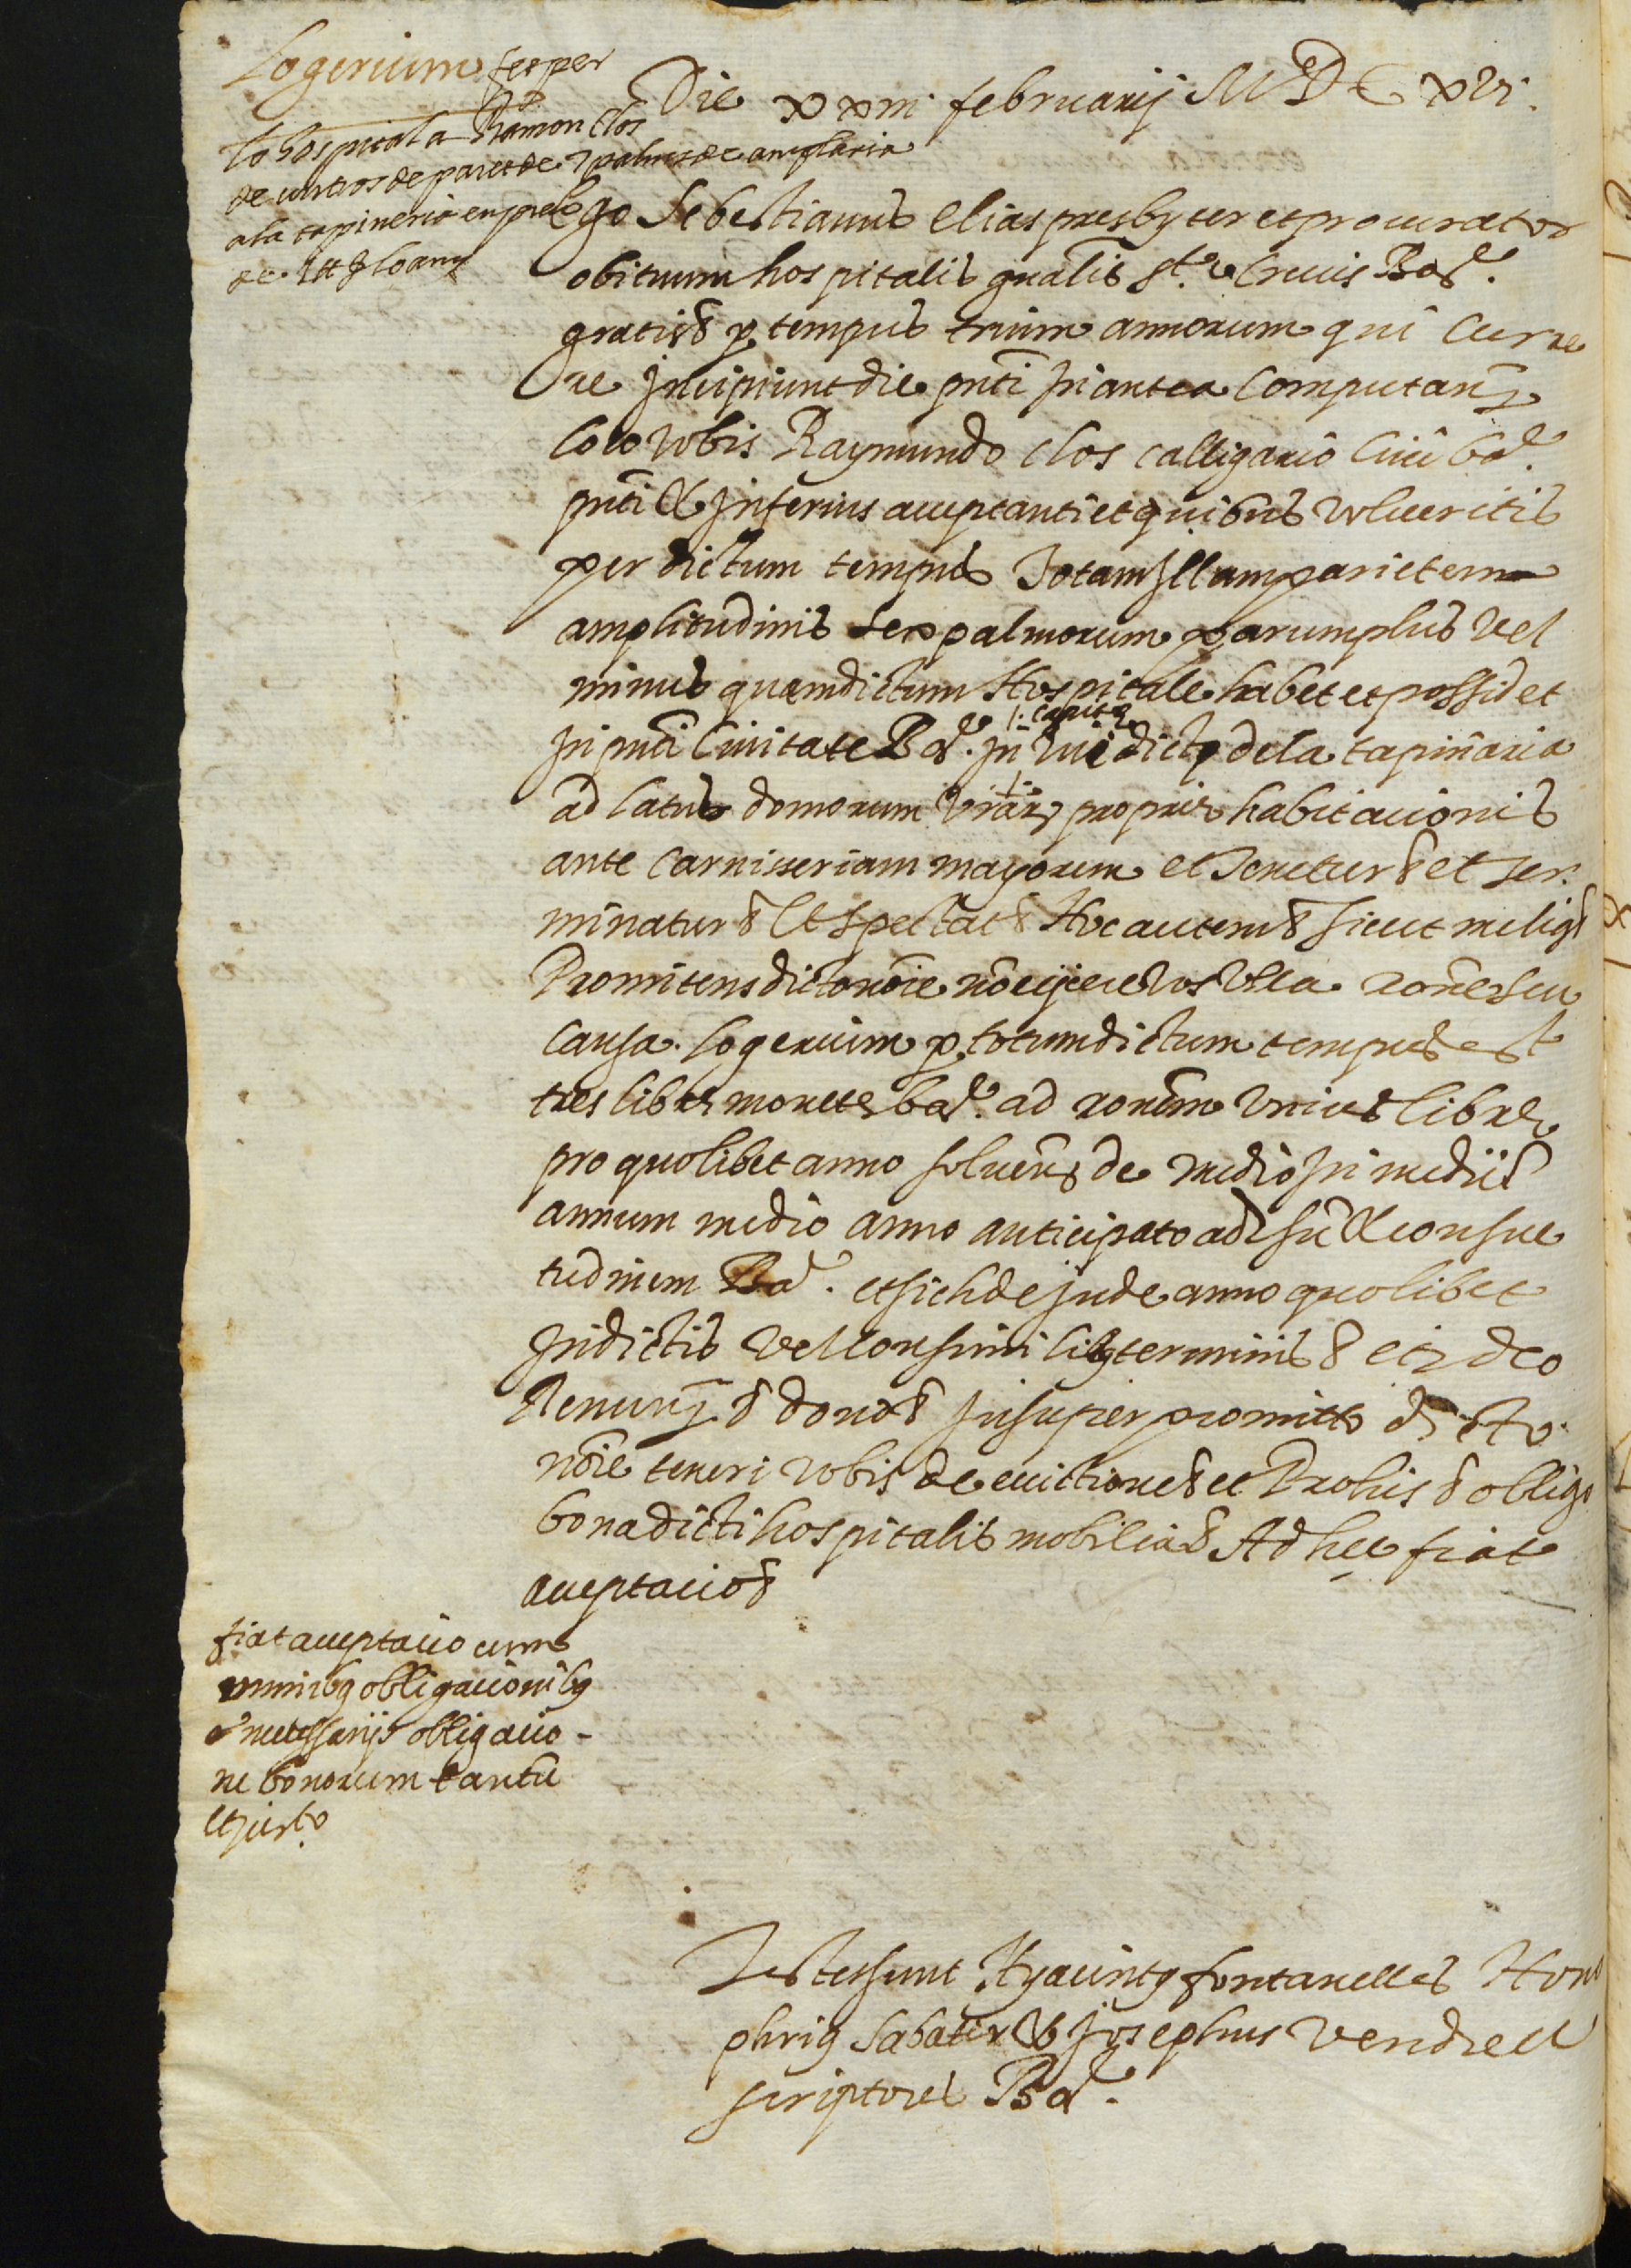 Logerium fet per
lo hospital a Ramon Clos
de un tros de paret de 7 palms de amplaria
a la tapineria en preu
de
Die xxiii februarij MDCxvi.
Ego Sebestianus Elias presbyter et procurator
obituum hospitalis gnalis Ste Crucis Bar.
gratis & p tempus trium annorum qui curre
re incipiunt die pnti in antea computan
loco vobis Raymundo Clos calligario civi bar.
pnti & inferius acceptanti et quibus volueritis
per dictum tempus Totam illam parietem
amplitudinis sex palmorum parum plus vel
minus quam dictum Hospitale habet et possidet
in pnti Civitate Bar. in capite vici dicti de la tapinaria
ad latus domorum vrar propriæ habitacionis
ante carnisseriam majorem et Tenetur & et ter
minatur & Et spectat & Hoc autem & sicut melius
Promitens dicto noie no eijcere vos Ulla rone seu
causa. logerium p totum dictum tempus est
tres libræ monetæ bar. ad ronem unius libræ
pro quolibet anno solven de medio in medium
annum medio anno anticipato ad usu & consue
tudinem Bar. et sich deinde anno quolibet
in dictis vel consimilibq terminis & et ideo
Renun & dona & insuper promitto dicto
noie teneri vobis de evictione & et Pro his & obligo
bona dicti hospitalis mobilia & Ad hec fiat
acceptacio &
fiat acceptacio cum
omnibq obligacionibq
necessarijs obligacio-
ne bonorum tantu
et jurto
Testes sunt Hyacintq fontanelles Hono
phriq Sabater & Josephus Vendrell
scriptores Bar.